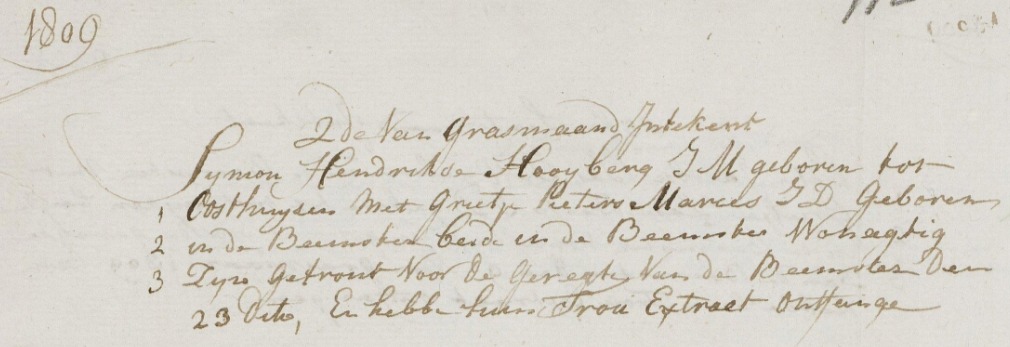 1809
2de Van Grasmaand Intekent
Symon Hendrikse Hooyberg J M geboren tot
1 Oosthuysen Met Grietje Pieters Marees J D Geboren
2 in de Beemster beide in de Beemster Wonagtig
3 Zyn Getrout Voor de Geregte Van de Beemster Den
23 dito, En hebbe hun Trou Extract Ontfange